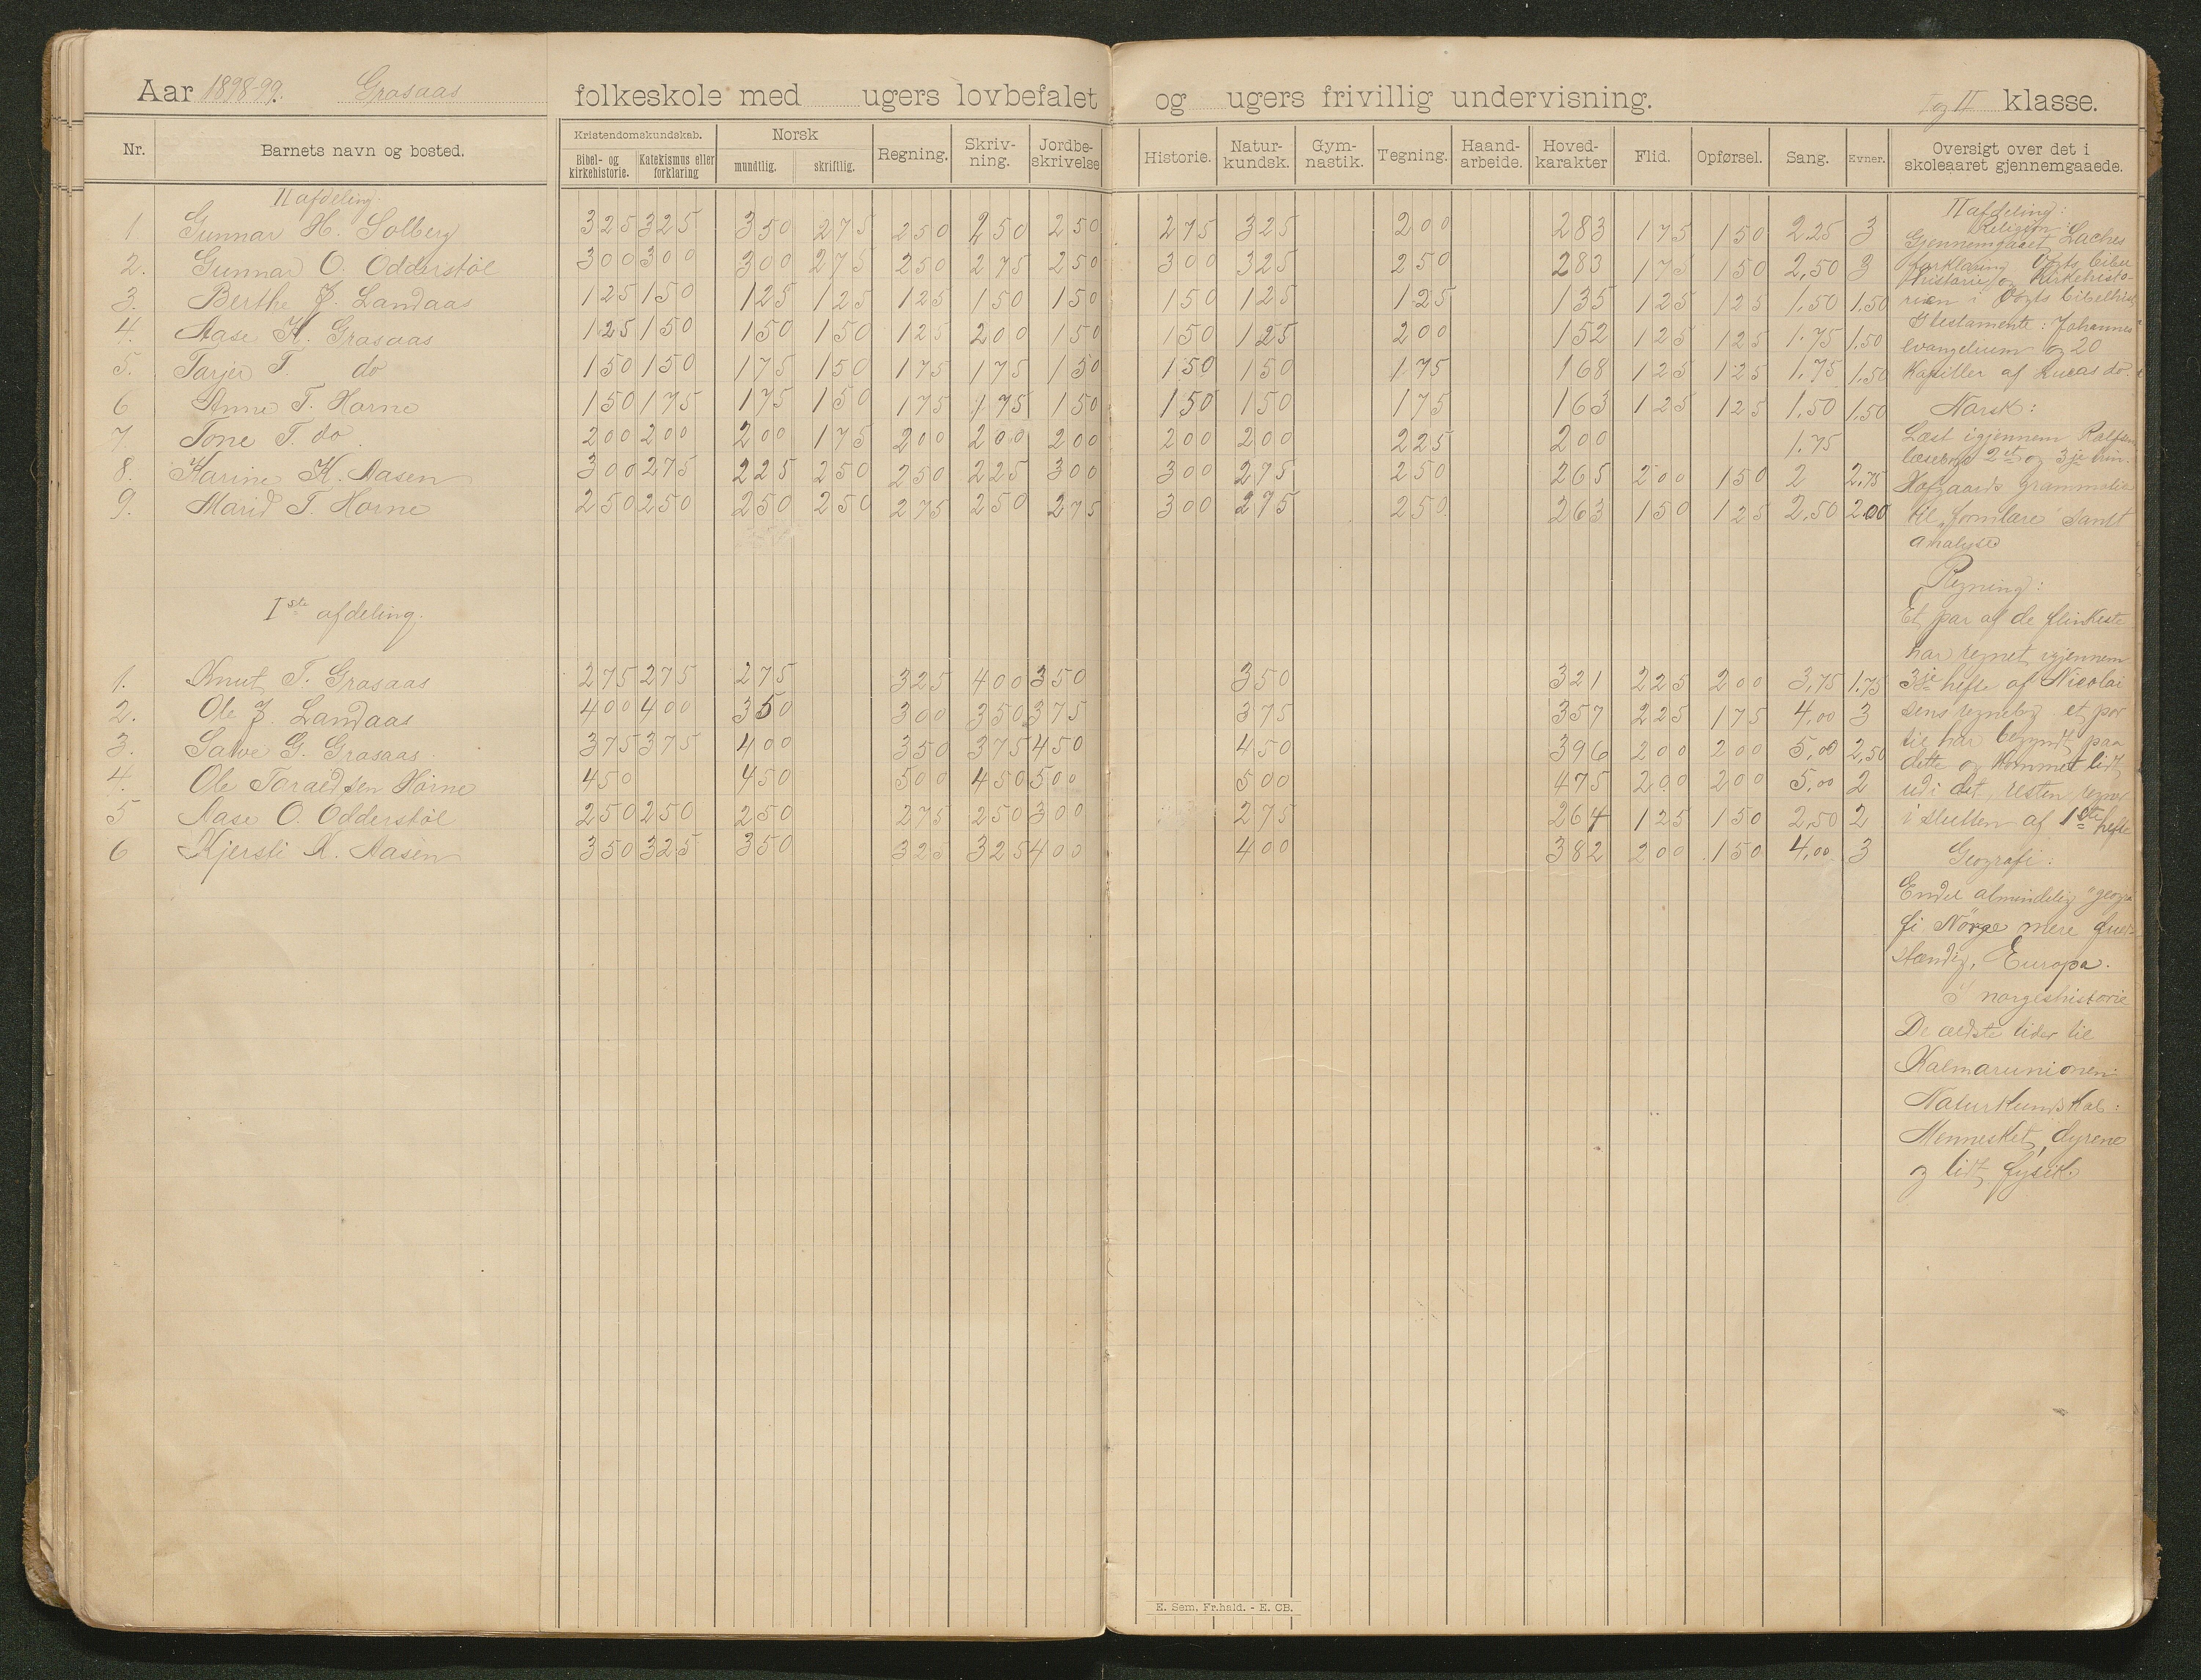 Aar 1898-99. Grasaas folkeskole med ugers lovbefalet og ugers frivillig undervisning. I og II klasse.
Nr. Barnets navn og bosted. Kristendomskundskab. Bibel- og kirkehistorie. Katekismus eller forklaring Norsk mundtlig. skriftlig. Regning. Skriv-ning. Jordbe-skrivelse Historie. Natur-kundsk. Gym-nastik. Tegning. Haand-arbeide. Hoved-karakter Flid. Opførsel. Sang. Evner. Oversigt over det i skoleaaret gjennemgaaede.
II afdeling.
1 Gunnar H. Solberg 325 325 350 275 250 250 250 275 325 200 283 175 150 2.25 3
2. Gunnar O. Odderstøl 300 300 300 275 250 275 250 300 325 250 283 175 150 2,50 3
3. Berthe J. Landaas 125 150 125 125 125 150 150 150 125 125 135 125 125 1.50 1.50
4. Aase K. Grasaas 125 150 150 150 125 200 150 150 125 200 152 125 125 1.75 1.50
5. Tarjer T. do 150 150 175 150 175 175 150 150 150 175 168 125 125 1.75 1.50
6 Anne T. Horne 150 175 175 150 175 175 150 150 150 175 163 125 125 1.50 1.50
7. Tone T. do 200 200 200 175 200 200 200 200 200 225 200 1.75
8. Karine K. Aasen 300 275 225 250 250 225 300 300 275 250 265 200 150 2 2.75
9. Marid T. Horne 250 250 250 250 275 250 275 300 275 250 263 150 125 2,50 2.00
Iste afdeling.
1. Knut T. Grasaas 275 275 275 325 400 350 350 321 225 200 3,75 1.75
2. Ole J. Landaas 400 400 350 300 350 375 375 357 225 175 4,00 3
3. Salve G. Grasaas 375 375 400 350 375 450 450 396 200 200 5,00 2,50
4. Ole Taraldsen Horne 450 450 500 450 500 500 475 200 200 5,00 2
5 Aase O. Odderstøl 250 250 250 275 250 300 275 264 125 150 2,50 2
6 Kjersti K. Aasen 350 325 350 325 325 400 400 382 200 150 4,00 3
II afdeling:
Religion:
Gjennemgaaet Laches
forklaring Vogts bibel
historie og Kirkehisto-
rien i Vogts bibelhist
Gl testamente: Johannes
evangelium og 20
Kapitler af Lucas do.
Norsk:
Læst igjennem Rolfsen
læsebog 2et og 3je trin.
Hofgaards grammatik
til formlære samt
analyse
Regning:
Et par af de flinkeste
har regnet igjennem
3je hefte af Nicolai
sens regnebog et par
til har begyndt paa
dette og kommet lidt
udi det, resten regner
i slutten af 1ste hefte
Geografi:
Endel almindelig geogra
fi Norge mere fuld-
stændig, Europa.
I norgeshistorie
De ældste tider til
Kalmarunionen
Naturkundskab:
Mennesket, dyrene
og lidt fysik.
E. Sem. Fr.hald. - E. CB.